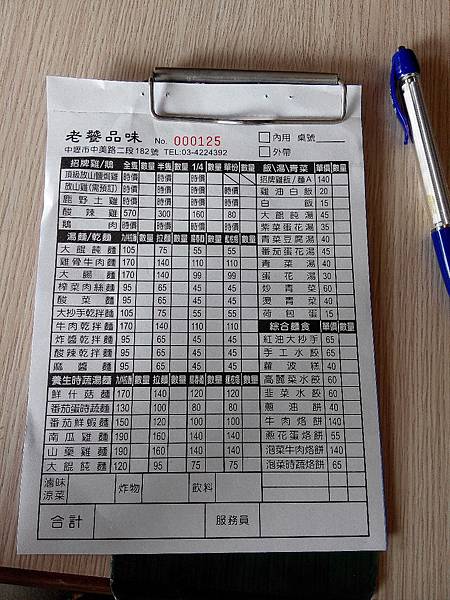 老饕品味 No. 000125 內用 桌號
中壢市中美路二段182號 TEL:03-4224392 外帶
招牌雞/鵝 全隻 數量 半隻 數量 1/4 數量 單份 數量
頂級放山鹽焗雞 時價 時價 時價
放山雞(需預訂) 時價 時價 時價
鹿野土雞 時價 時價 時價 時價
酸辣雞 570 300 160 80
鵝肉 時價 時價 時價 時價
湯麵/乾麵 數量 拉麵 數量 數量 數量
大餛飩麵 105 75 55 55
雞骨牛肉麵 170 140 110 110
大腸麵 170 140 99 99
榨菜肉絲麵 95 65 45 45
酸菜麵 95 65 45 45
大抄手乾拌麵 105 75 55 55
牛肉乾拌麵 170 140 110 110
炸醬乾拌麵 95 65 45 45
酸辣乾拌麵 95 65 45 45
麻醬麵 95 65 45 45
養生時蔬湯麵 數量 拉麵 數量 數量 數量
鮮什菇麵 170 140 120 120
番茄蛋時蔬麵 130 100 80 80
番茄鮮蝦麵 150 120 100 100
南瓜雞麵 190 160 140 140
山藥雞麵 190 160 140 140
大餛飩麵 120 95 75 75
滷味 涼菜 炸物 飲料
合計 服務員
飯\湯\青菜 單價 數量
招牌雞飯/麵A 140
雞油白飯 20
白飯 15
大餛飩湯 45
紫菜蛋花湯 35
青菜豆腐湯 40
番茄蛋花湯 45
青菜湯 40
蛋花湯 30
炒青菜 60
燙青菜 40
荷包蛋 15
綜合麵食 單價 數量
紅油大抄手 65
手工水餃 60
蘿波糕 40
高麗菜水餃 60
韭菜水餃 60
蔥油餅 40
牛肉烙餅 140
蔥花蛋烙餅 55
泡菜牛肉烙餅 140
泡菜時蔬烙餅 65